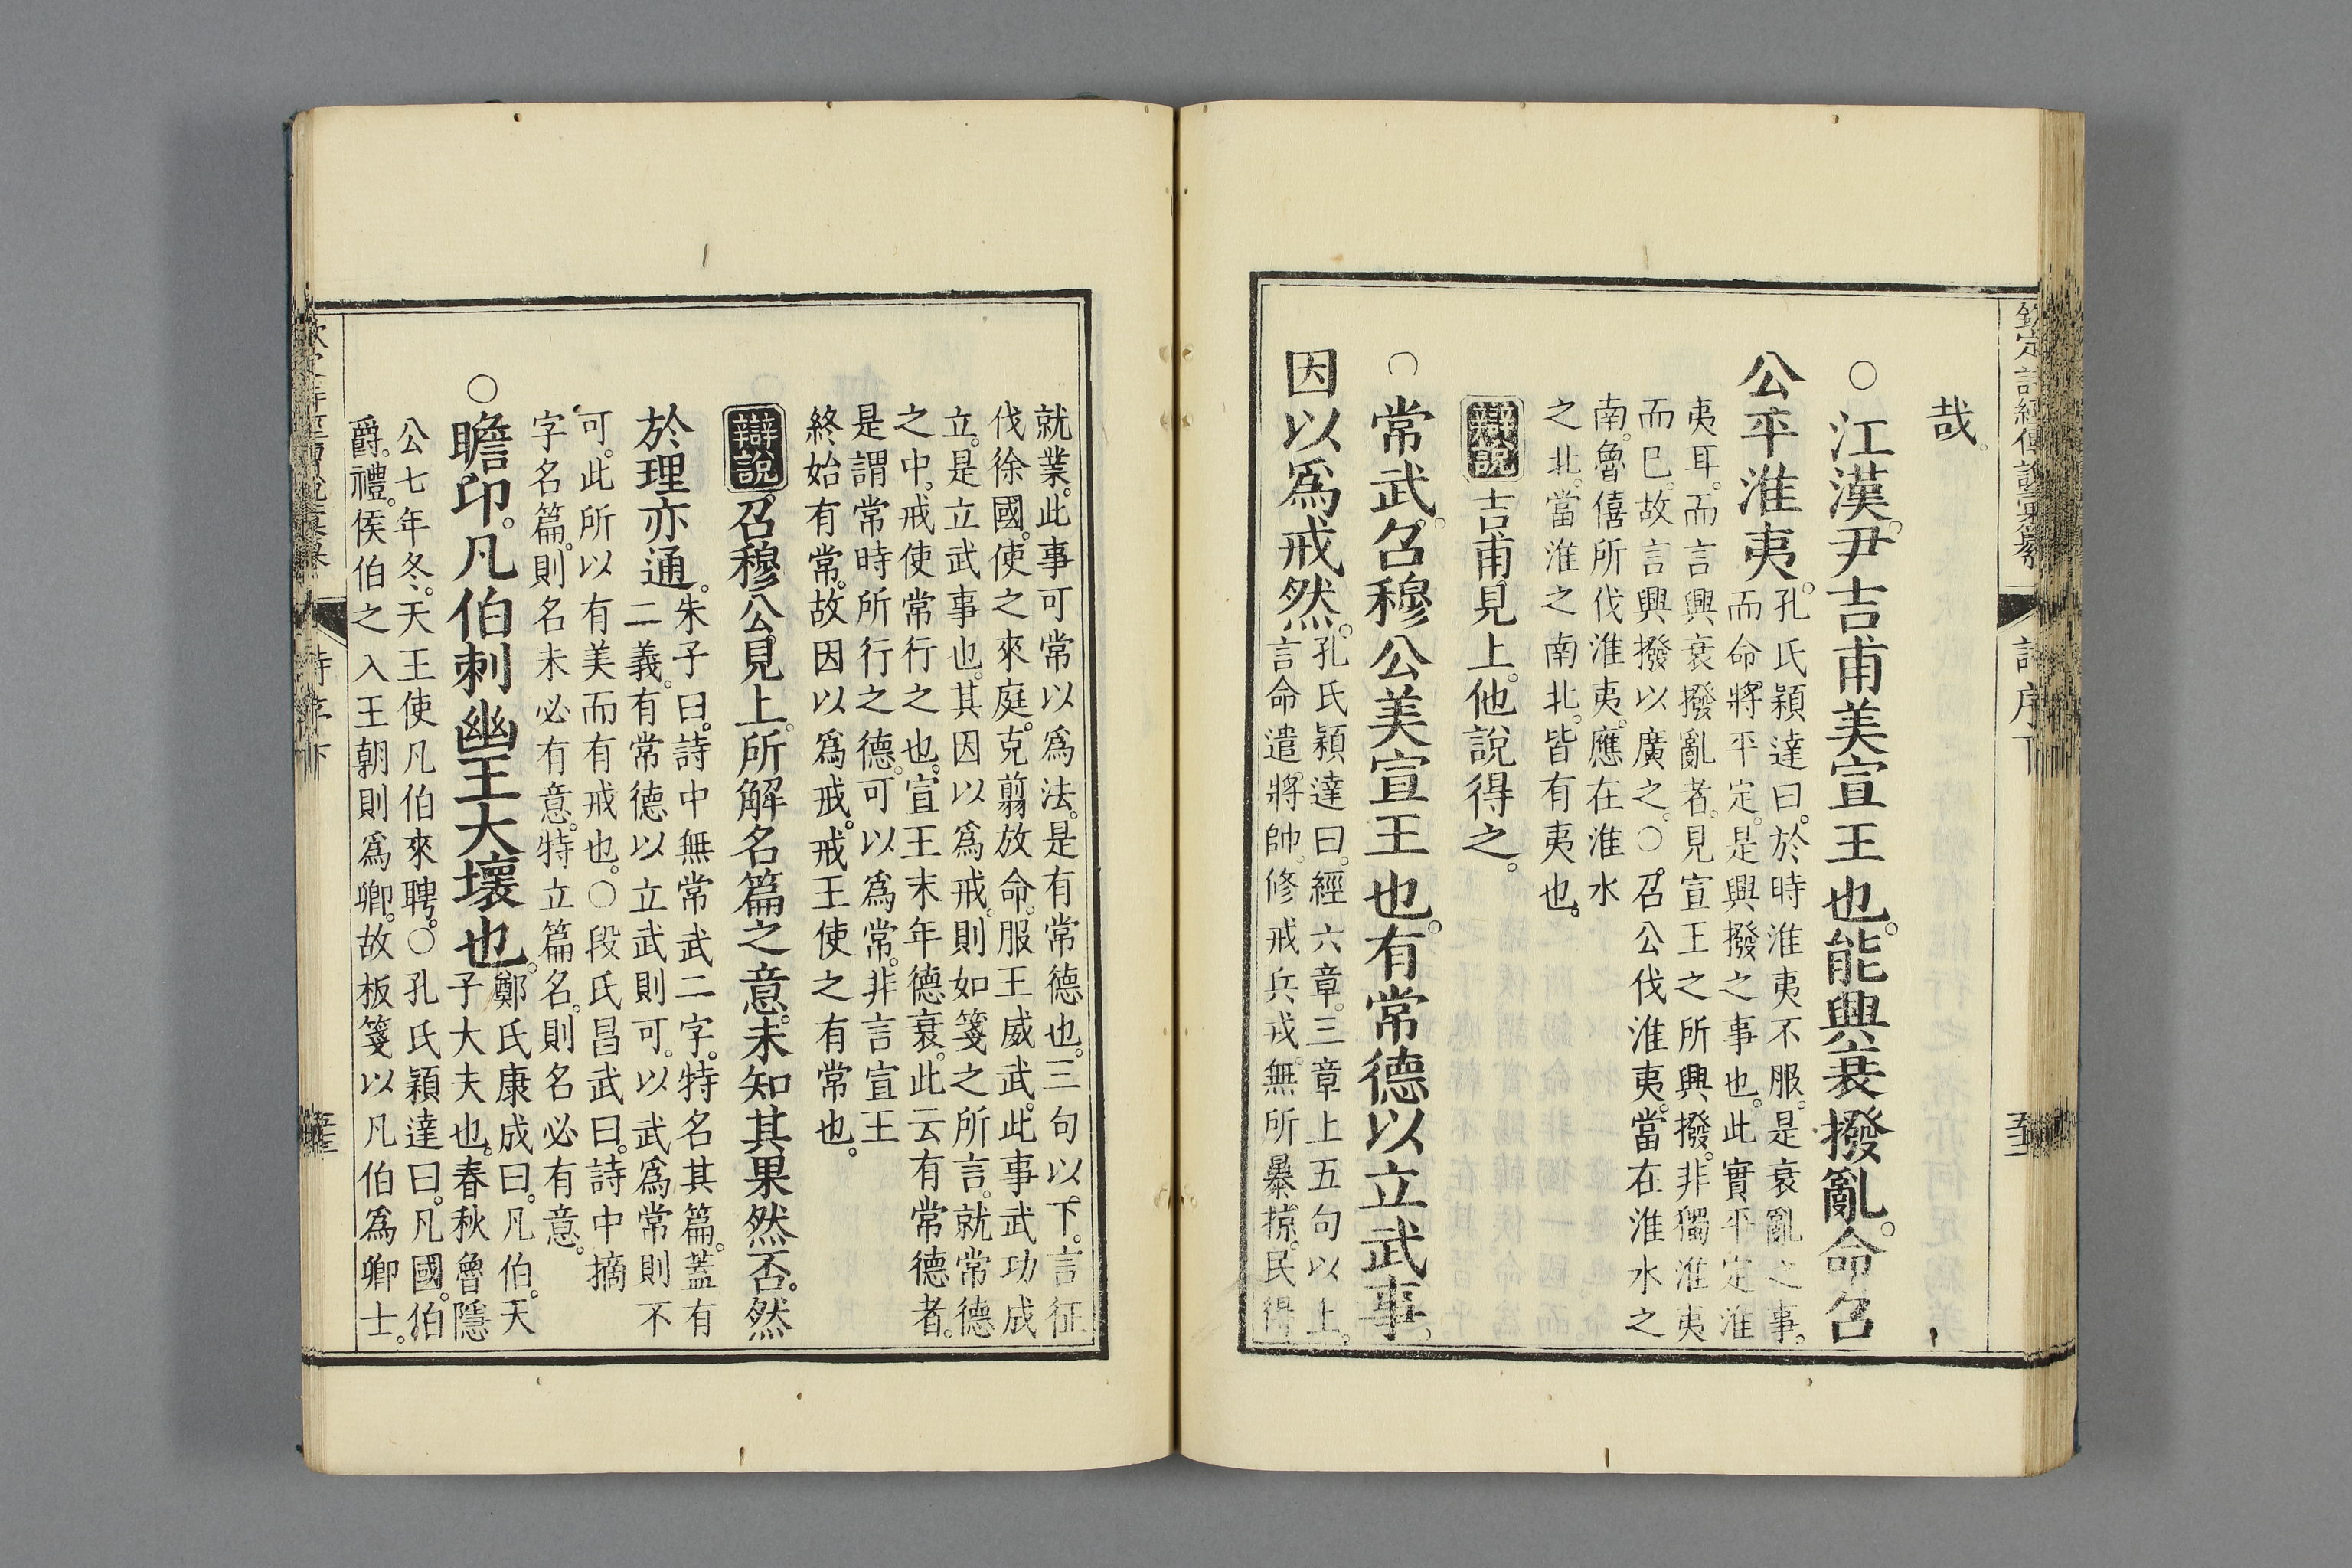 欽定詩經傳說彙纂　詩序下
哉。
○江漢。尹吉甫美宣王也。能興衰撥亂。命召
公平淮夷。孔氏穎達曰。於時淮夷不服。是衰亂之事。
而命將平定。是興撥之事也。此實平定淮
夷耳。而言興衰撥亂者。見宣王之所興撥。非獨淮夷
而巳。故言興撥以廣之。○召公伐淮夷。當在淮水之
南。魯僖所伐淮夷。應在淮水
之北。當淮之南北。皆有夷也。
辯說　吉甫見上。他說得之。
○常武。召穆公美宣王也。有常德以立武事。
因以爲戒然。孔氏穎達曰。經六章。三章上五句以上。
言命遣將帥。修戒兵戎。無所暴掠。民得
就業。此事可常以爲法。是有常德也。三句以下。言征
伐徐國。使之來庭。克翦放命。服王威武。此事武功成
立。是立武事也。其因以爲戒。則如箋之所言。就常德
之中。戒使常行之也。宣王末年德衰。此云有常德者。
是謂常時所行之德。可以爲常。非言宣王
終始有常。故因以爲戒。戒王使之有常也。
辯說　召穆公見上。所解名篇之意。未知其果然否。然
於理亦通。朱子曰。詩中無常武二字。特名其篇。蓋有
二義。有常德以立武則可。以武爲常則不
可。此所以有美而有戒也。○段氏昌武曰。詩中摘
字名篇。則名未必有意。特立篇名。則名必有意。
○瞻卬。凡伯刺幽王大壞也。鄭氏康成曰。凡伯。天
子大夫也。春秋魯隱
公七年冬。天王使凡伯來聘。○孔氏穎達曰。凡國。伯
爵。禮。侯伯之入王朝則爲卿。故板箋以凡伯爲卿士。
詩序下